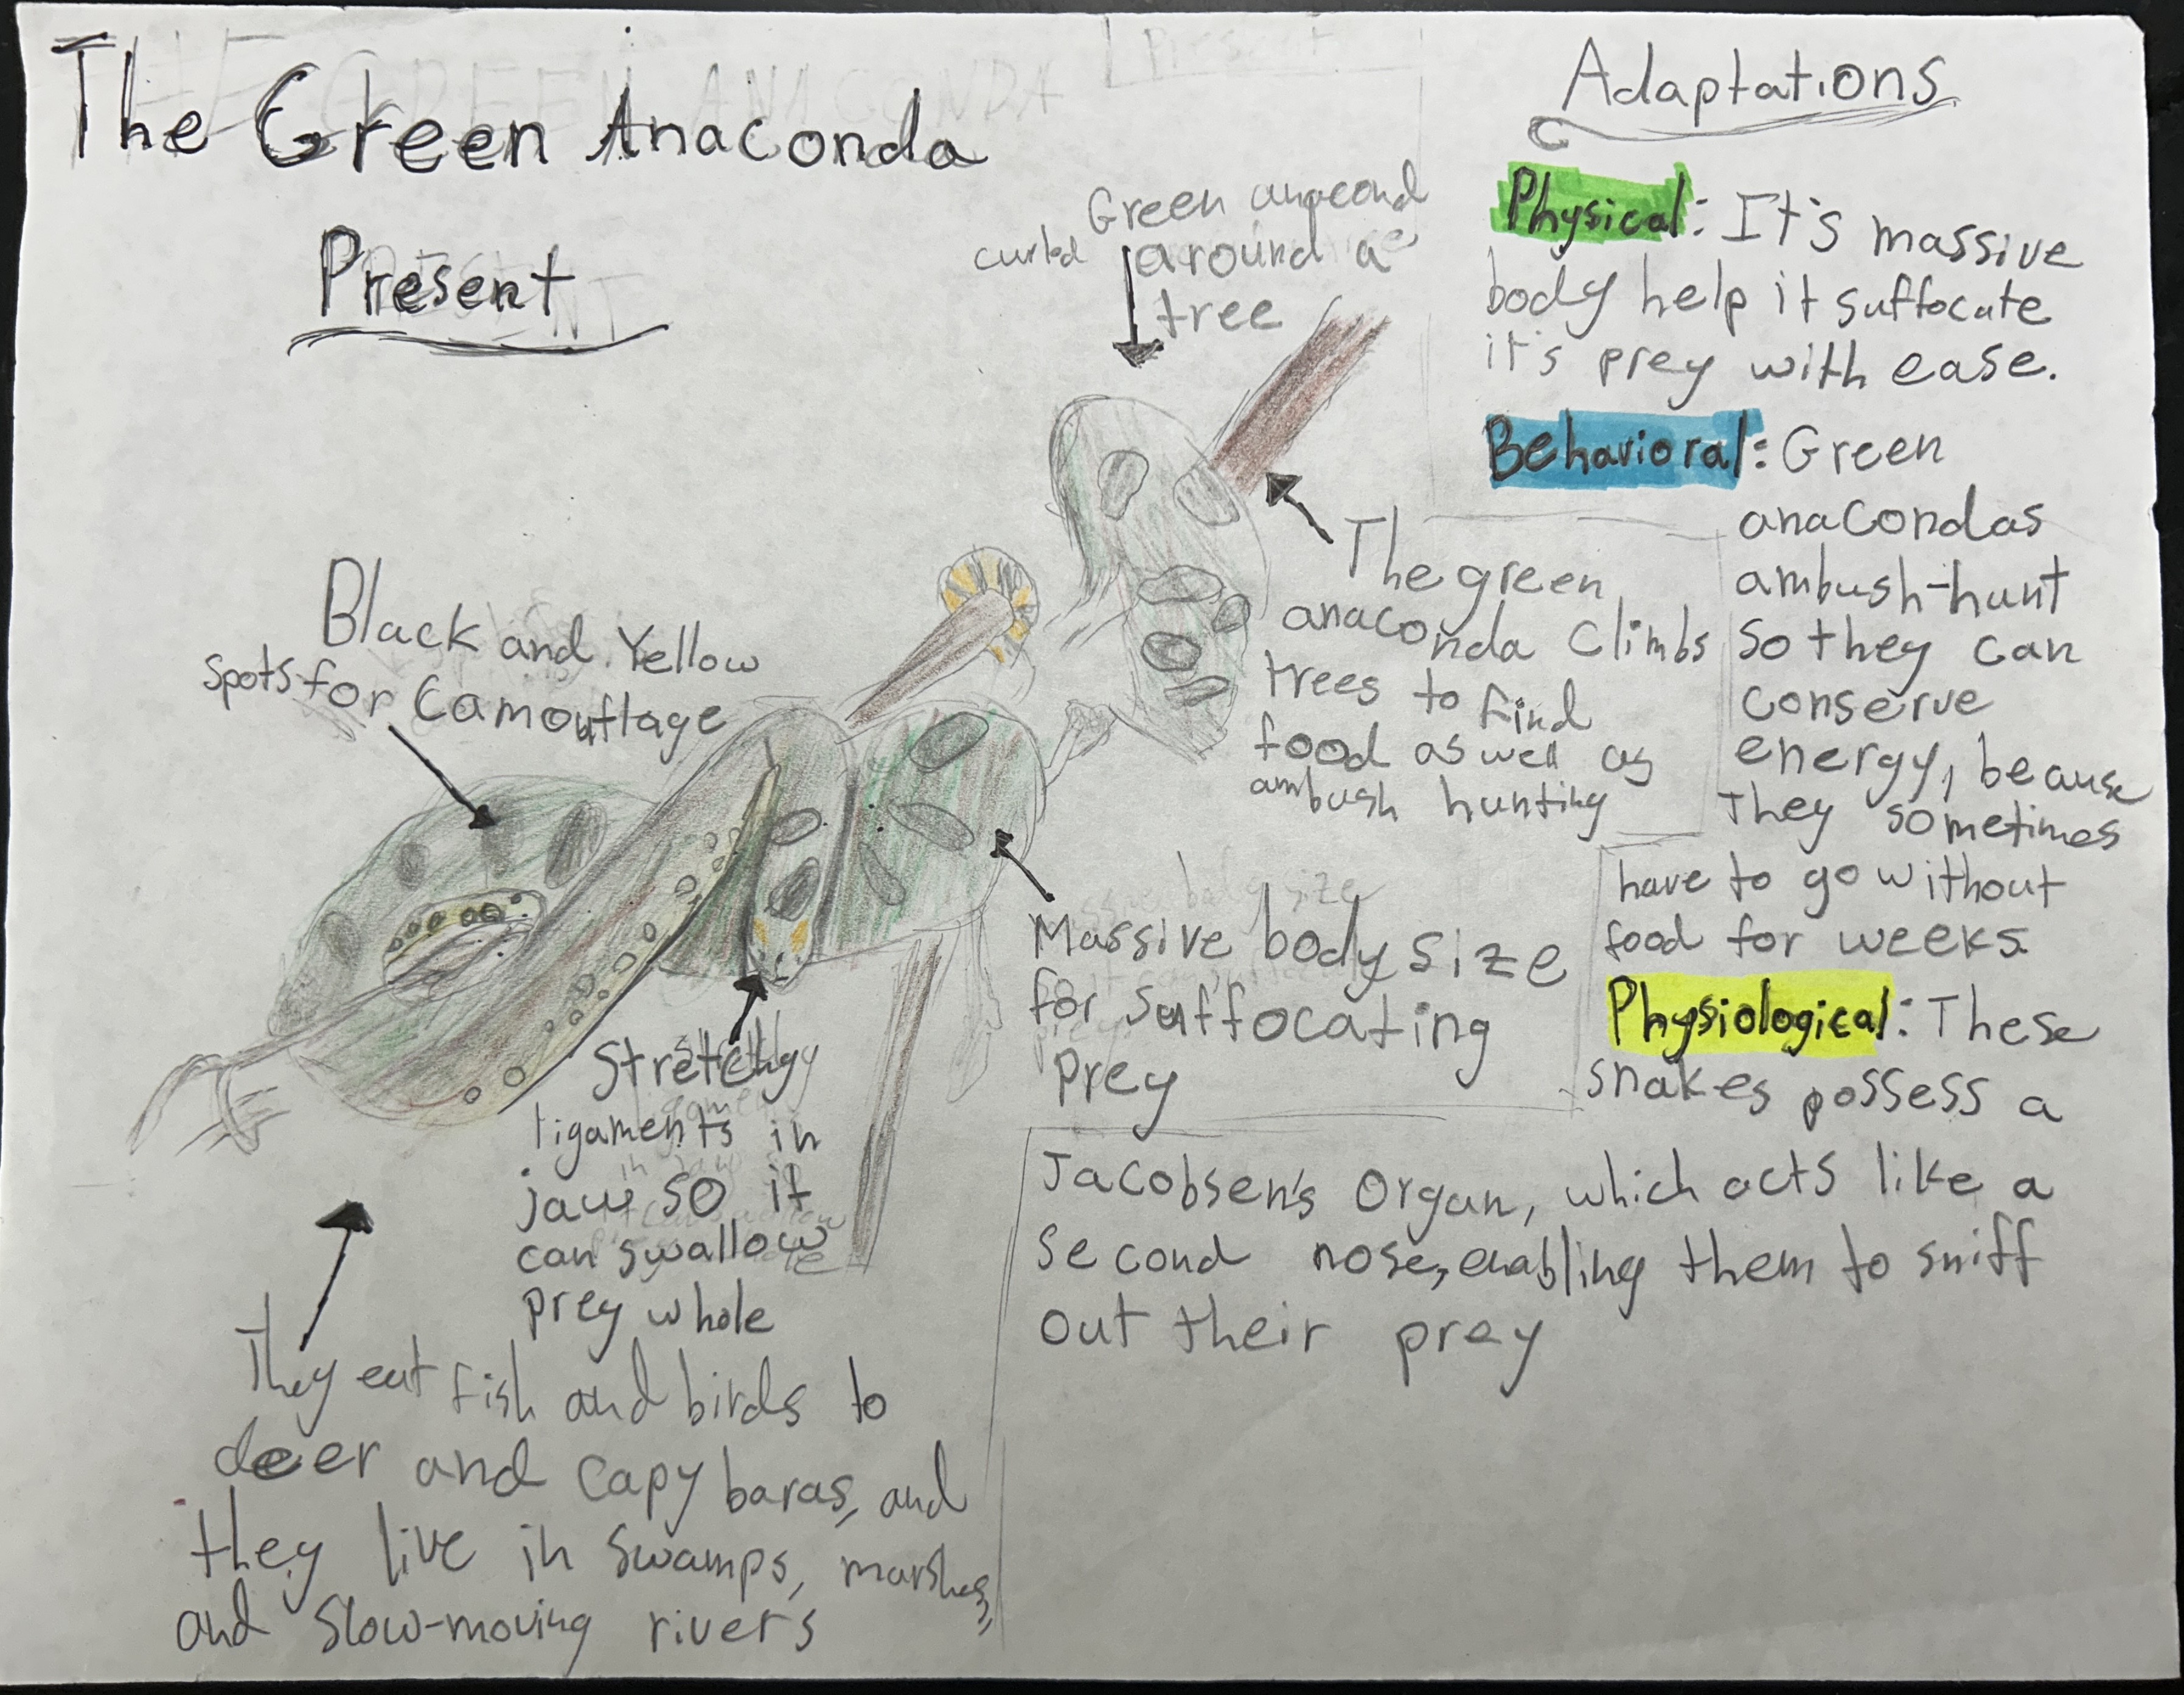 The Green Anaconda
Present
Green anacond
curled around a
tree
Black and Yellow
spots for Camouflage
The green
anaconda climbs
trees to find
food as well as
ambush hunting
Massive body size
for suffocating
prey
Stretchy
ligaments in
jaw so it
can swallow
prey whole
They eat fish and birds to
deer and capybaras, and
they live in swamps, marshes,
and slow-moving rivers
Adaptations
Physical: It's massive
body help it suffocate
it's prey with ease.
Behavioral: Green
anacondas
ambush-hunt
so they can
conserve
energy, beause
They sometimes
have to go without
food for weeks.
Physiological: These
snakes possess a
Jacobsen's Organ, which acts like a
second nose, enabling them to sniff
out their prey